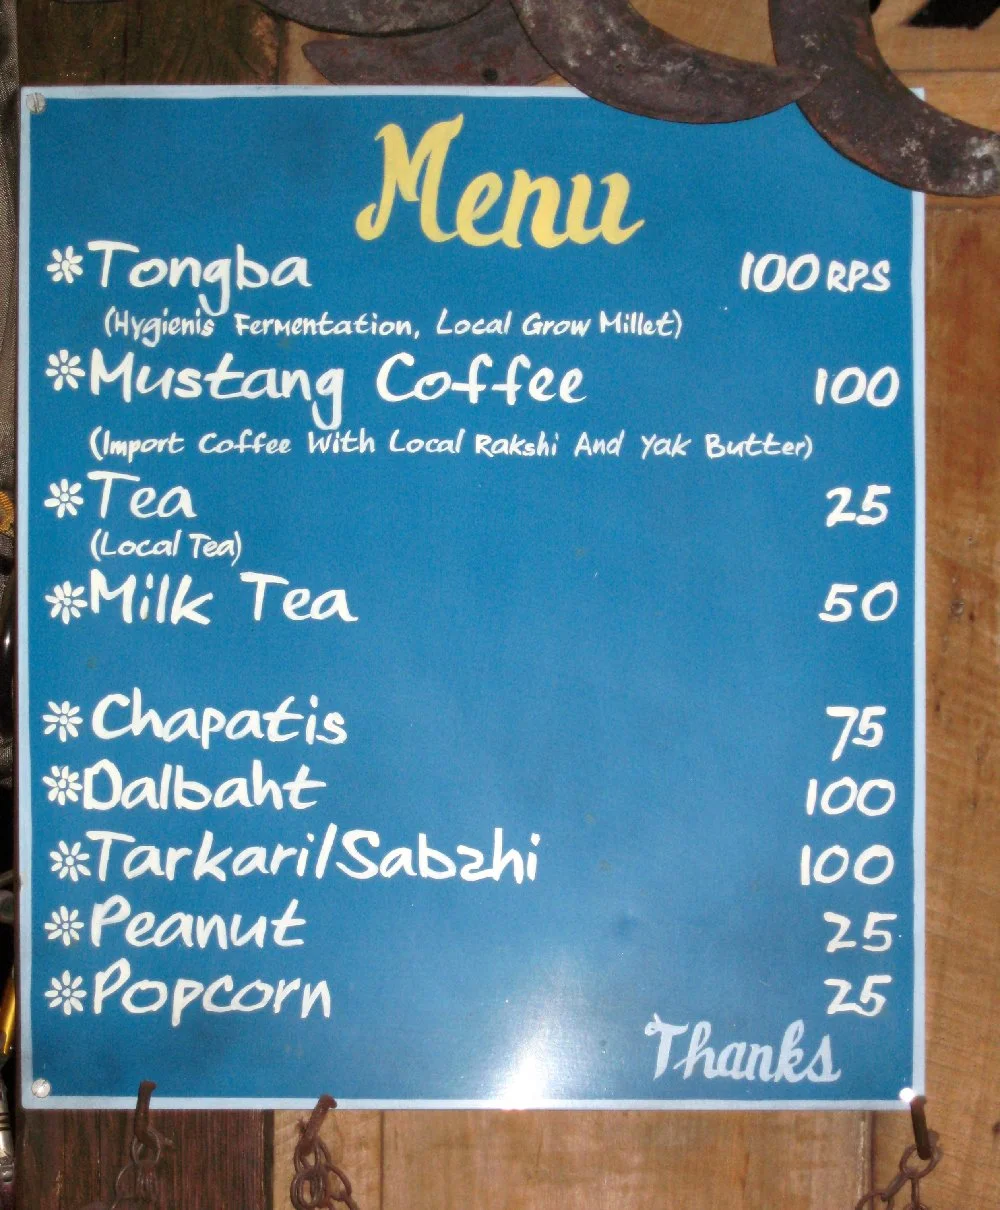 Menu
Tongba 100 RPS
(Hygienis Fermentation, Local Grow Millet)
Mustang Coffee 100
(Import Coffee With Local Rakshi And Yak Butter)
Tea 25
(Local Tea)
Milk Tea 50
Chapatis 75
Dalbaht 100
Tarkari/Sabzhi 100
Peanut 25
Popcorn 25
Thanks